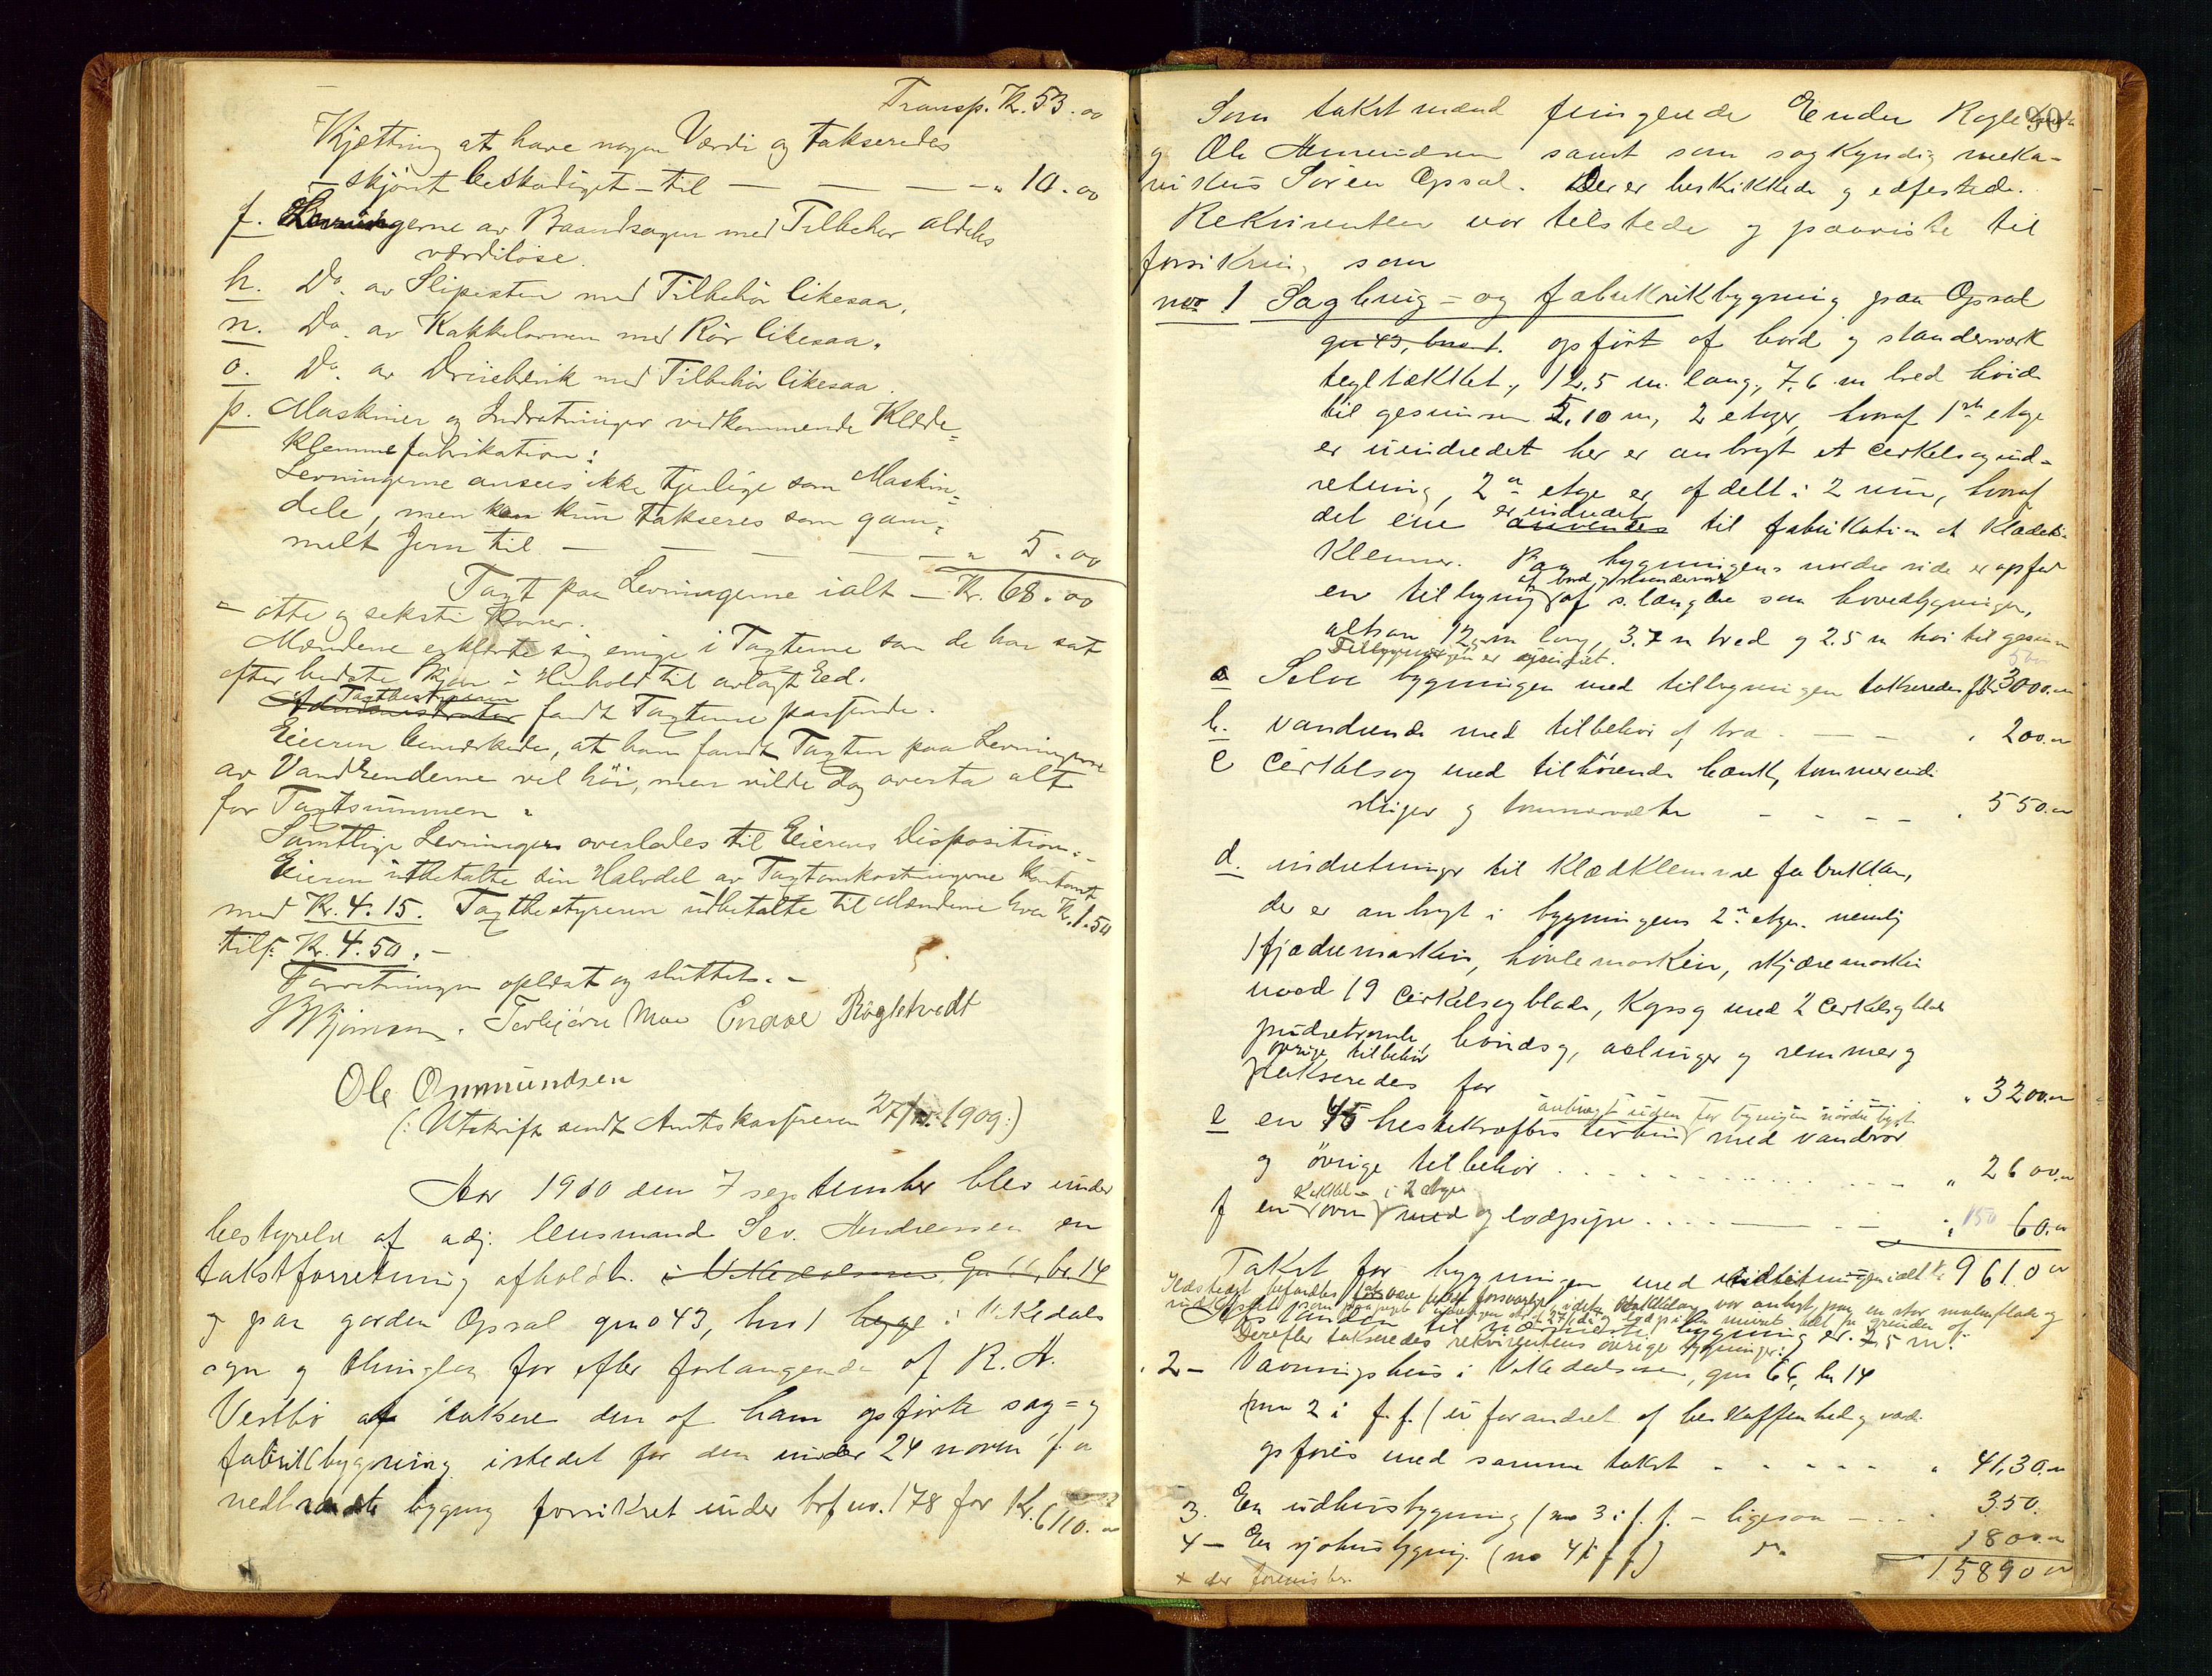 Transp. Kr. 53.00
Kjætting at have nogen Værdi og takseredes
– skjönt beskadiget – til – – – – " 10.00
f. Levningerne av Baandsagen med Tilbehør aldeles
værdiløse.
h. Do. av Slipesten med Tilbehör likesaa.
n. Do. av Kakkelovnen med Rör likesaa.
o. Do. av Dreiebænk med Tilbehör likesaa.
p. Maskiner og Indretninger vedkommende Klæde=
klemmefabrikation:
Levningerne ansees ikke tjenlige som Maskin=
dele, men kan kun takseres som gam=
melt Jern til – – – – – " 5.00
Taxt paa Levningerne ialt – Kr. 68.00
– otte og seksti Kroner.
Mændene erklærte sig enige i Taxterne som de har sat
efter bedste Skjøn i Henhold til avlagt Eed.
Taxtbestyreren
fandt Taxterne passende.
Eieren bemærkede, at han fandt Taxten paa Levningerne
av Vandrenderne vel höi, men vilde dog overta alt
for Taxtsummen.
Samtlige Levninger overlodes til Eierens Disposition.–
Eieren utbetalte sin Halvdel av Taxtomkostningerne kontant
med Kr. 4.15. Taxtbestyreren utbetalte til Mændene hver Kr. 1.50
tils. Kr. 4.50.–
Forretningen oplæst og sluttet.–
Torbjørn Moe Endre Røgletvedt
Ole Ommundsen
(: Utskrift sendt Amtskassereren 27/11 1909:)
Aar 1910 den 7 september blev under
bestyrelse af adj. lensmand Sev. Andreassen en
takstforretning afholdt. i Vikedalsøren, Gn 66, br. 14
og paa gården Opsal gno 43, bn 1 i Vikedals
sogn og thinglag for efter forlangende af R. A.
Vestbø at taksere den af ham opførte sag= og
fabrikbygning istedet for den under 24 novem f. a
nedbrændte bygning forsikret under brf no. 178 for Kr. 6110.00
80
Som takstmænd fungerede Endre Røgletvedt
og Ole Ommundsen samt som sagkyndig meka-
nikus Sören Opsal. De er beskikkede og edfestede.
Rekvirenten var tilstede og paaviste til
forsikring som
no 1 Sagbrug- og fabrikbygning paa Opsal
gn 43, bno 1. opført af bord og standerværk
tegltækket, 12.5 m. lang, 7.6 m bred höide
til gesimsen 5.10 m, 2 etager, hvoraf 1ste etage
er uindredet her er anbragt et cirkelsagind-
retning, 2n etage er afdelt i 2 rum, hvoraf
er indredet
det ene anvendes til fabrikation af klæde-
klemmer. Paa bygningens nordre side er opført
af bord og standerværk
en tilbygning af s. længde som hovedbygningen,
altsaa 12.5 m lang, 3.7 m bred og 2.5 m høi til gesims
Tilbygningen er uindredet.
a Selve bygningen med tilbygningen takseredes for Kr 3000.00
b. vandrende med tilbehör af træ – – " 200.00
c Cirkelsag med tilhörende bænk, tømmerendi
og tømmervalte – – – – " 550.00
d. indretninger til klædklemme fabrikken,
der er anbragt i bygningens 2n etage. nemlig
1 fjædremaskin, hövlemaskin, skjæremaskin
med 19 cirkelsagblade, kapsag med 2 cirkelsagblade
pudsetromle, baandsag, axlinger og remmer og
øvrige tilbehör
takseredes for " 3200.00
anbragt uden for bygningen nordre bygn
e en 45 hestekræfters turbin med vandrör
og övrige tilbehör " 2600.00
Kakkel- i 2 etage
f en ovn med og lodpipe " 150 60.00
Takst for bygningen med indretninger ialt Kr 9610.00
Afstanden til nærmeste bygning er 25 m.
Derefter takseredes rekvirentens övrige bygninger:
2– Vaaningshus i Vikedalsøren, gn 66, bn 14
(no 2 i f. f.) uforandret af beskaffenhed og værd.
opføres med samme takst – – – – " 4130.00
3. En udhusbygning (no 3 i f. f. – ligesaa – 350.
4– En sjøhusbygning (no 4 i f. f.) do 1800.00
15890.00